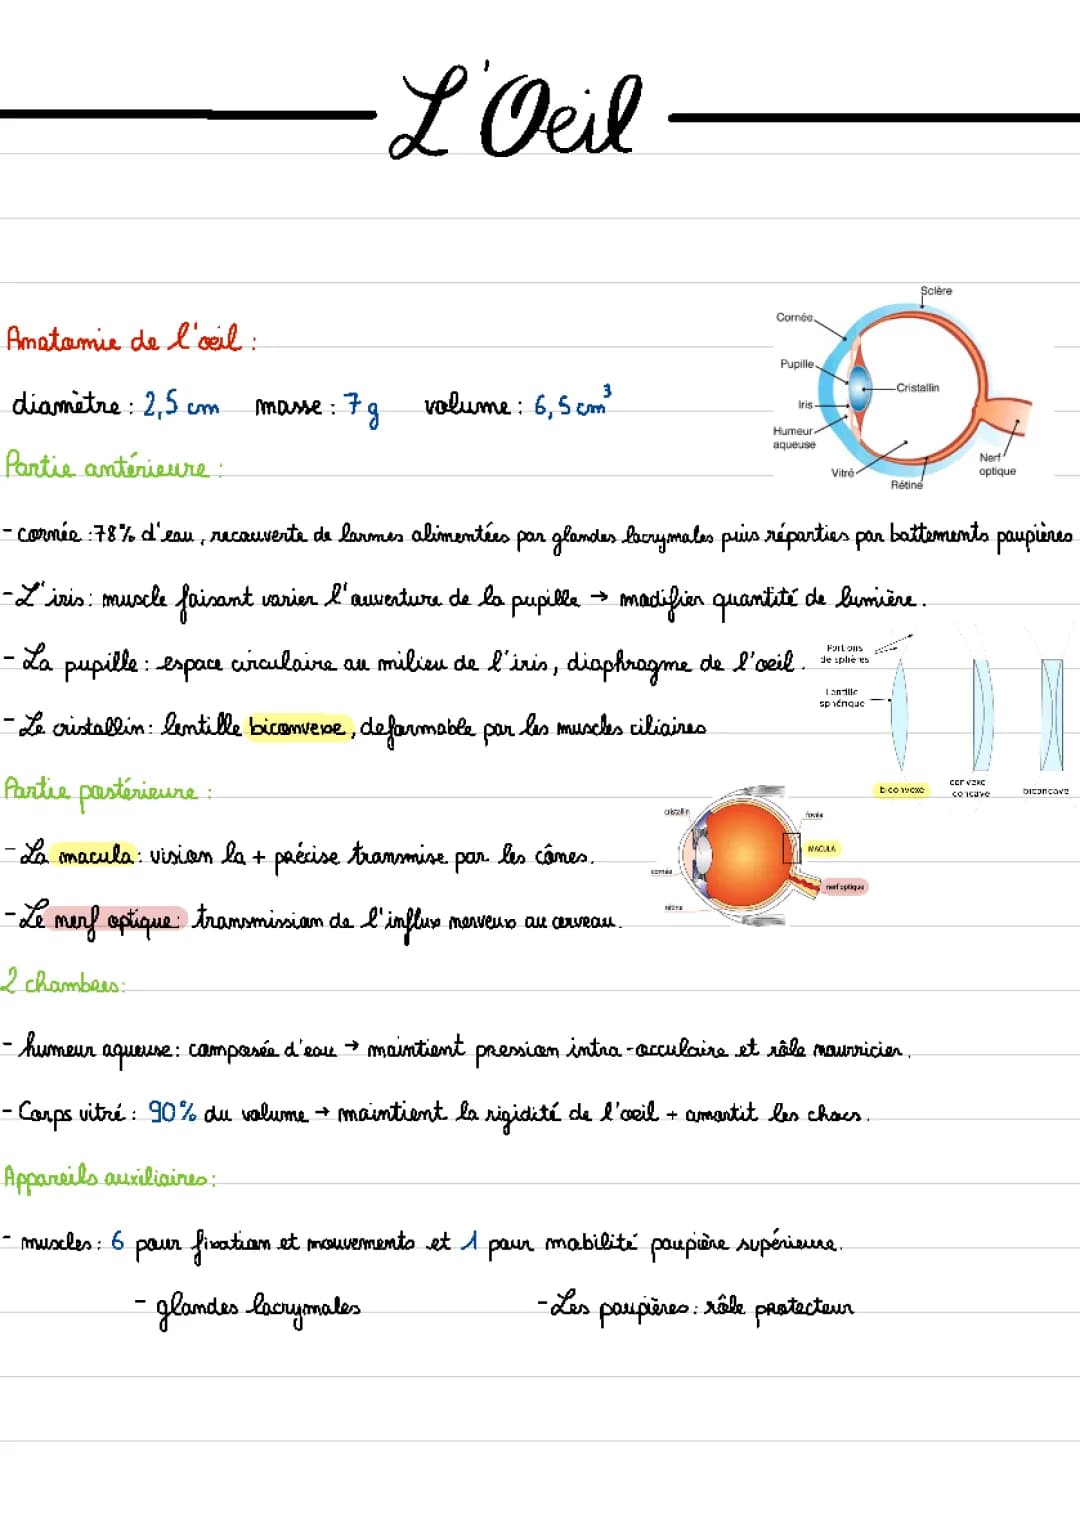 L'Oeil
Anatomie de l'œil :
diamètre : 2,5 cm masse : 7 g volume : 6,5 cm³
Partie antérieure :
Sclère
Cornée
Pupille
Cristallin
Iris
Humeur
aqueuse
Vitré
Rétine
Nerf
optique
- cornée : 78% d'eau, recouverte de larmes alimentées par glandes lacrymales puis réparties par battements paupières
- L'iris : muscle faisant varier l'ouverture de la pupille → modifier quantité de lumière.
- La pupille : espace circulaire au milieu de l'iris, diaphragme de l'oeil.
- Le cristallin : lentille biconvexe, deformable par les muscles ciliaires
Portions
de sphères
Lentille
sphérique
biconvexe
convexe
concave
biconcave
Partie postérieure :
- La macula : vision la + précise transmise par les cônes.
- Le nerf optique : transmission de l'influx nerveux au cerveau.
cristallin
fovéa
MACULA
cornée
nerf optique
rétine
2 chambres :
- humeur aqueuse : composée d'eau → maintient pression intra-occulaire et rôle nourricier.
- Corps vitré : 90% du volume → maintient la rigidité de l'oeil + amortit les chocs.
Appareils auxiliaires :
- muscles : 6 pour fixation et mouvements et 1 pour mobilité paupière supérieure.
- glandes lacrymales - Les paupières : rôle protecteur